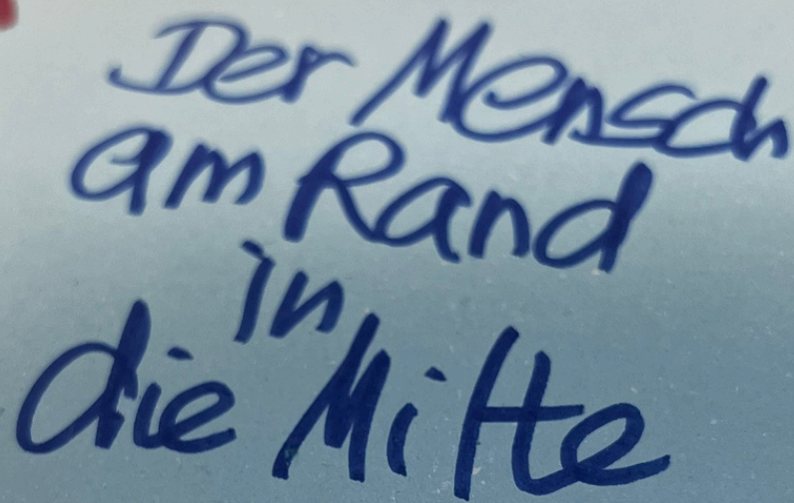 Der Mensch
am Rand
in
die Mitte